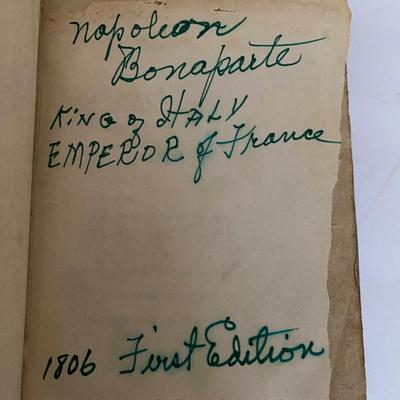 Napoleon
Bonaparte
King of ITALY
EMPEROR of France
1806 First Edition